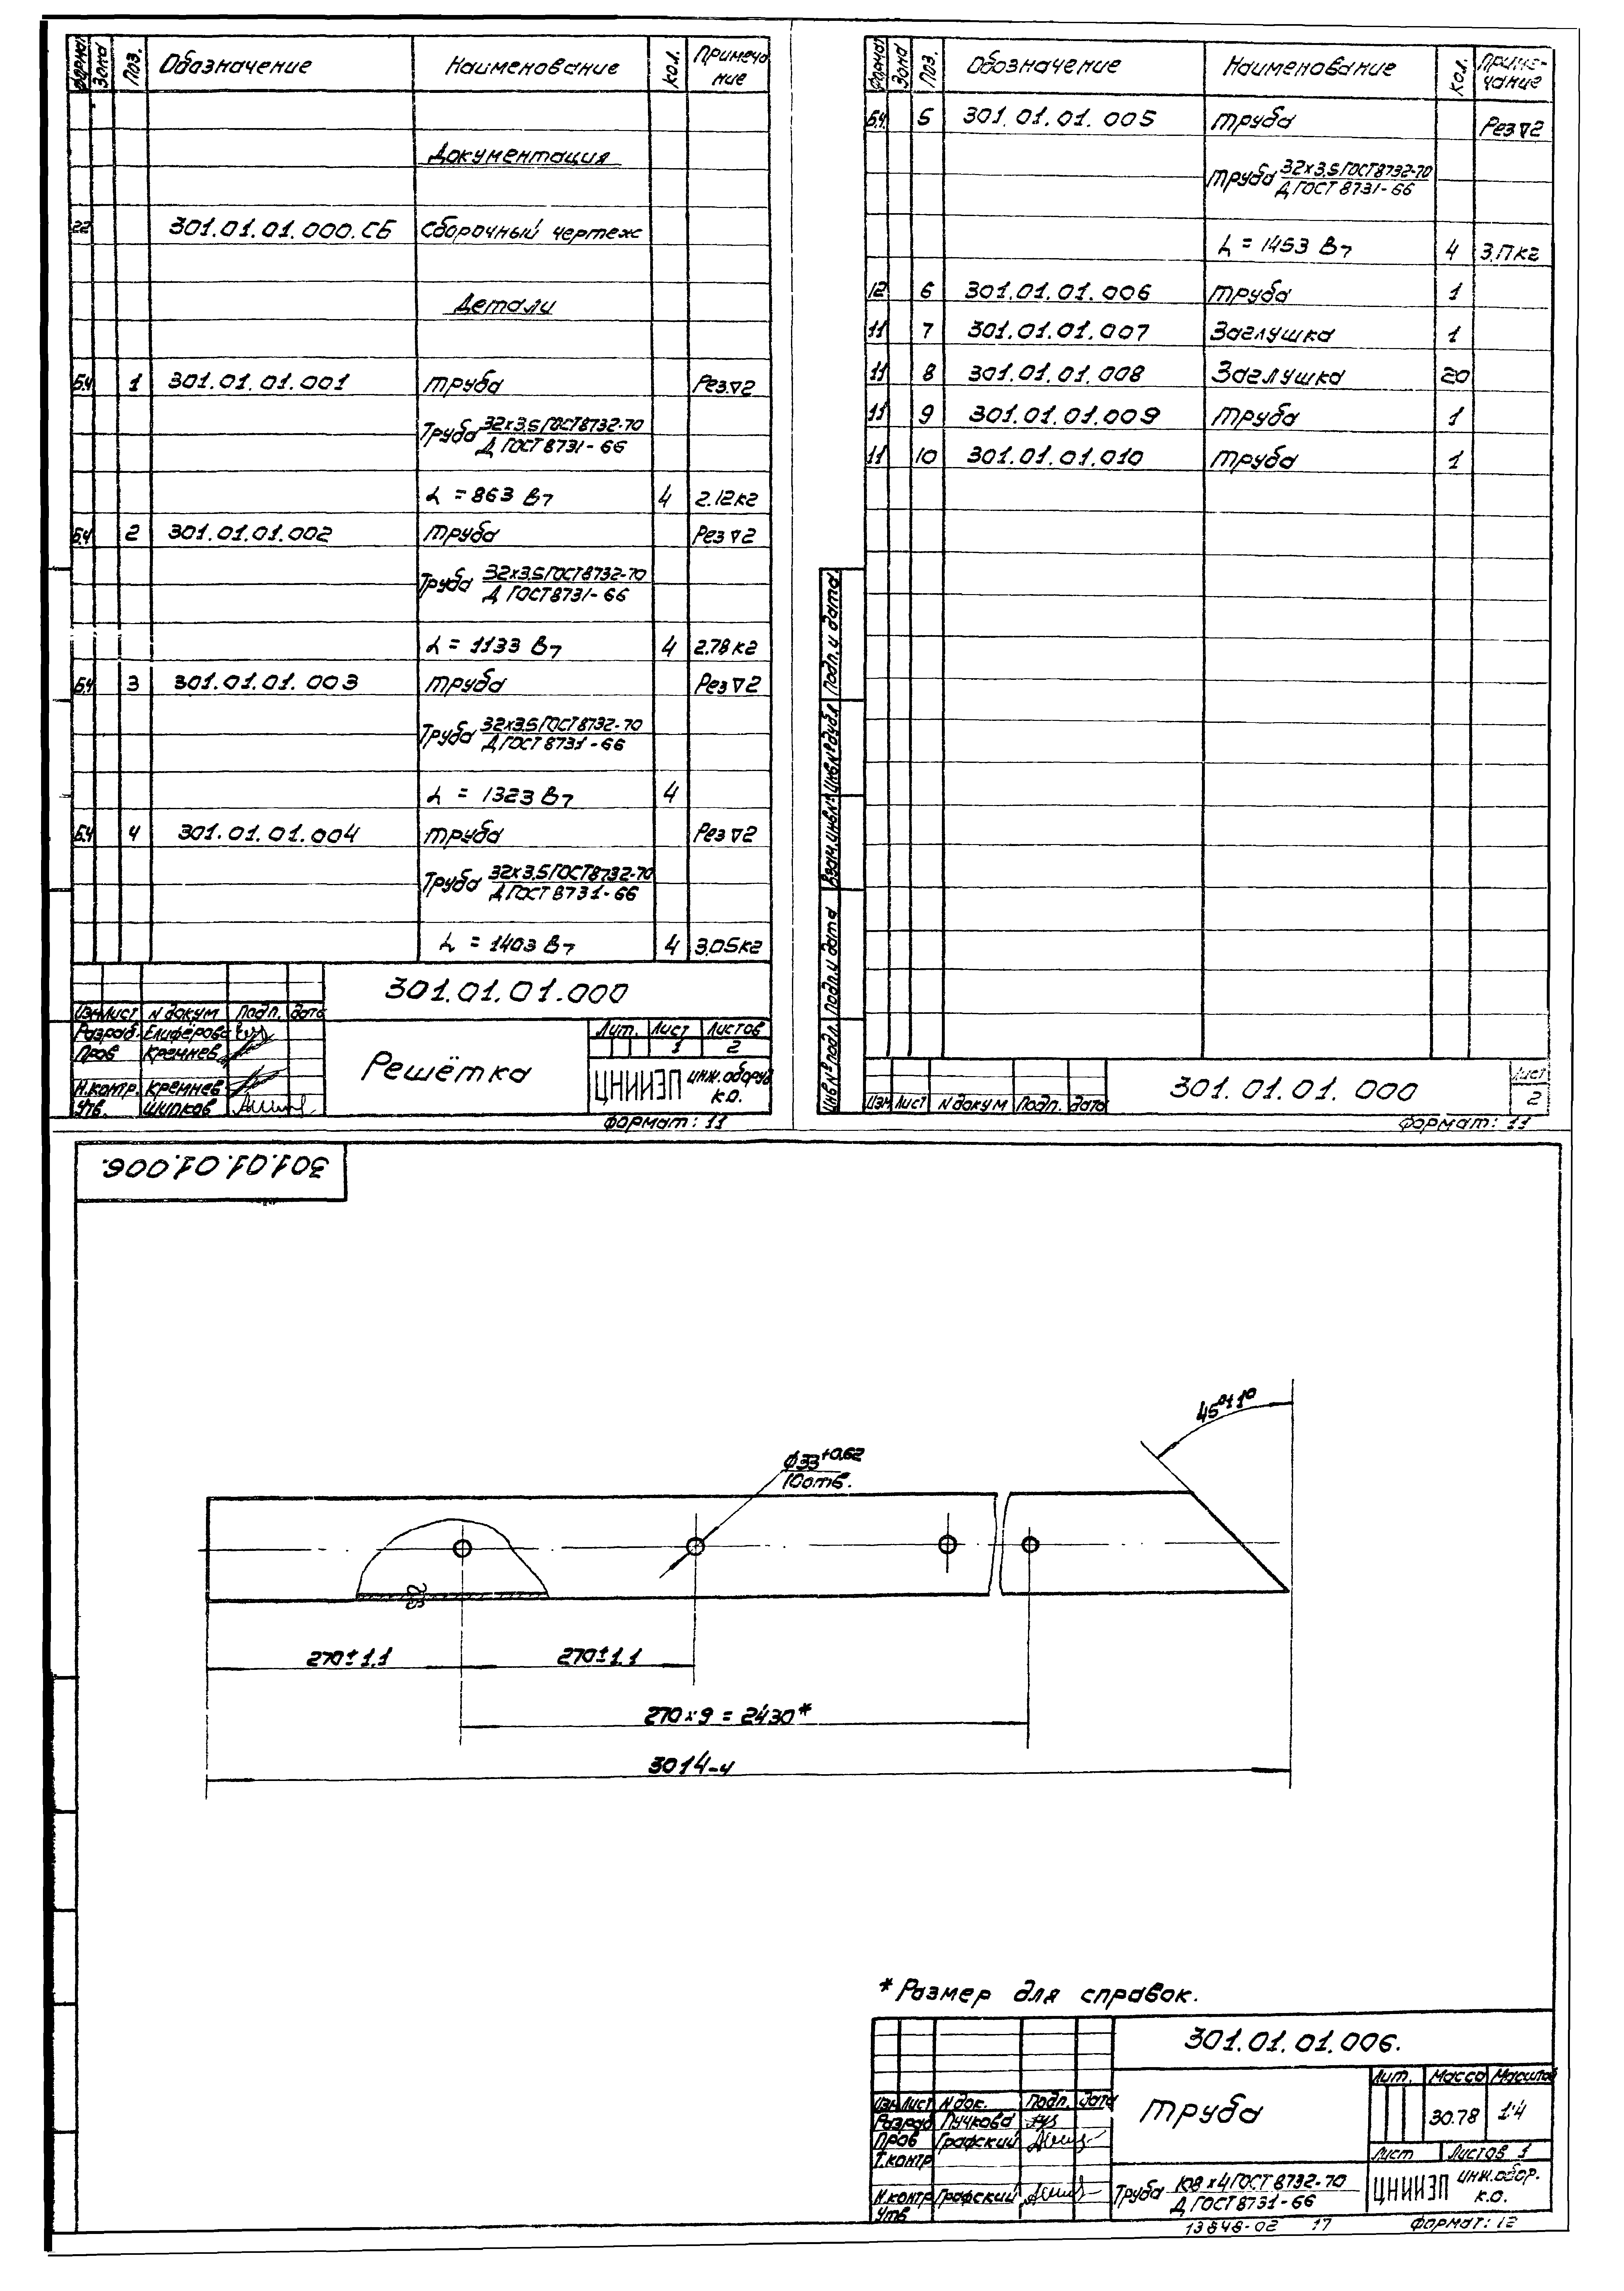 Формат Зона Поз. Обозначение Наименование Кол. Примеча
ние
Документация
22 301.01.01.000.СБ Сборочный чертеж
Детали
Б.Ч 1 301.01.01.001 Труба Рез▽2
Труба 32х3.5 ГОСТ 8732-70
Д ГОСТ 8731-66
L = 863 В7 4 2.12кг
Б.Ч 2 301.01.01.002 Труба Рез▽2
Труба 32х3.5 ГОСТ 8732-70
Д ГОСТ 8731-66
L = 1133 В7 4 2.78кг
Б.Ч 3 301.01.01.003 Труба Рез▽2
Труба 32х3.5 ГОСТ 8732-70
Д ГОСТ 8731-66
L = 1323 В7 4
Б.Ч 4 301.01.01.004 Труба Рез▽2
Труба 32х3.5 ГОСТ 8732-70
Д ГОСТ 8731-66
L = 1403 В7 4 3.05кг
301.01.01.000
Изм Лист N докум Подп. дата
Разраб. Елиферова
Пров Кремнев
Н.контр. Кремнев
Утв. Шипков
Решётка
Лит. Лист Листов
1 2
ЦНИИЭП инж.оборуд
К.О.
Формат: 11
Формат Зона Поз. Обозначение Наименование Кол. Приме-
чание
Б.Ч. 5 301.01.01.005 Труба Рез▽2
Труба 32х3.5 ГОСТ 8732-70
Д ГОСТ 8731-66
L = 1453 В7 4 3.17кг
12 6 301.01.01.006 Труба 1
11 7 301.01.01.007 Заглушка 1
11 8 301.01.01.008 Заглушка 20
11 9 301.01.01.009 Труба 1
11 10 301.01.01.010 Труба 1
Инв.№подл. Подп.и дата Взам.инв.№ Инв.№дубл. Подп.и дата
Изм Лист N докум Подп. дата
301.01.01.000
Лист
2
Формат: 11
301.01.01.006.
45°±1°
ф33+0.62
10отв.
270±1.1 270±1.1
270х9 = 2430*
3014-4
* Размер для справок.
301.01.01.006.
Изм Лист N док. Подп. дата
Разраб Пучкова
Пров Графский
Т.контр
Н.контр Графский
Утв
Труба
Лит. Масса Масштаб
30.78 1:4
Лист Листов 1
Труба 108х4 ГОСТ 8732-70
Д ГОСТ 8731-66
ЦНИИЭП инж.обор.
К.О.
13848-02 17 Формат: 12